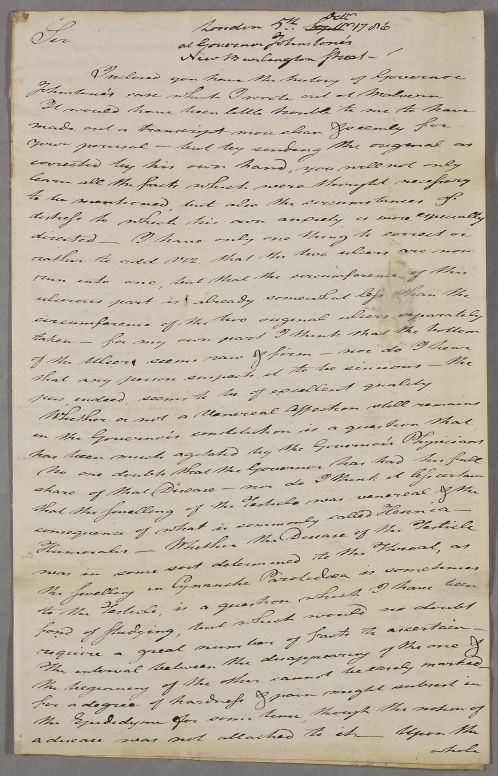 London 5th Octr. 1786
Sir
at Governor Johnstone's
New Burlington Street –
I inclosed you have the history of Governor
Johnstone's case which I wrote out at Malvern
It would have been little trouble to me to have
made out a transcript more clean & seemly for
your perusal – but by sending the original as
corrected by his own hand, you will not only
learn all the facts which were thought necessary
to be mentioned, but also the circumstances of
distress to which his own anxiety is more especially
directed – I have only one thing to correct or
rather to add viz. that the two ulcers are now
run into one, but that the circumference of this
ulcerous part is already somewhat less than the
circumference of the two original ulcers separately
taken – for my own part I think that the bottom
of the Ulcer seems raw & firm – nor do I hear
that any person suspects it to be sinuous – the
pus, indeed, seems to be of excellent quality
Whether or not a Venereal affection still remains
in the Governor's constitution is a question that
has been much agitated by the Governor's Physicians
No one doubts that the Governor has had his full
share of that Disease – nor do I think it less certain
that the swelling of the Testicle was venereal & the
consequence of what is commonly called Hernia
Humoralis – Whether the Disease of the Testicle
was in some sort determined to the Throat, as
the swelling in Cynanche Parotidæa is sometimes
to the Testicle, is a question which I have been
fond of studying, but which would no doubt
require a great number of facts to ascertain –
The interval between the disappearing of the one &
the beginning of the other cannot be easily marked
for a degree of hardness & pain might subsist in
the Epididyme for some time, though the notion of
a disease was not attached to it – Upon the
whole